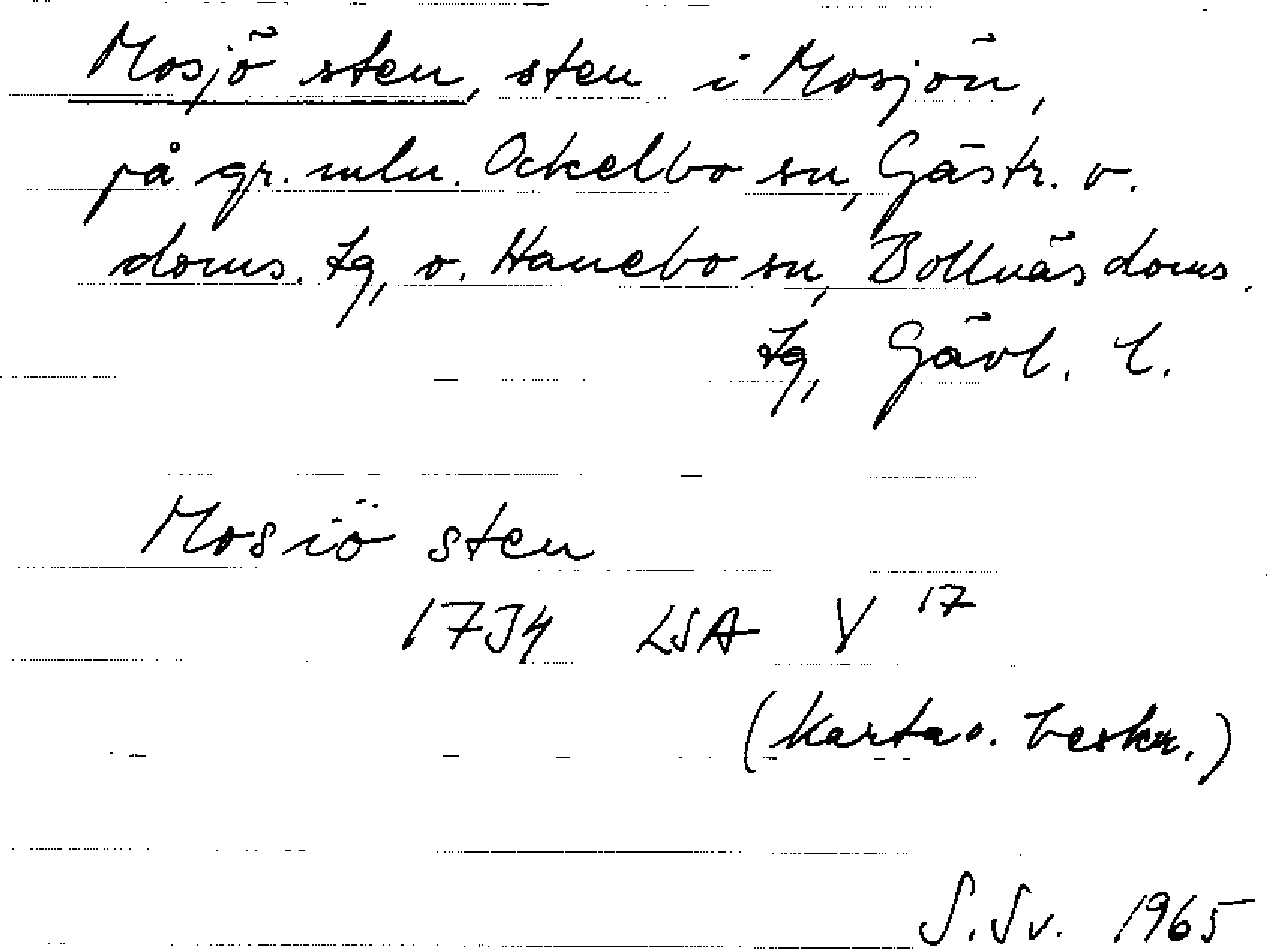 Mosjö sten, sten i Mosjön,
på gr. mln. Ockelbo sn, Gästr. v.
doms. tg, o. Hanebo sn, Bollnäs doms.
tg, Gävl. l.
Mosiö sten
1734 LSA V 17
(karta o. beskr.)
S. Sv. 1965